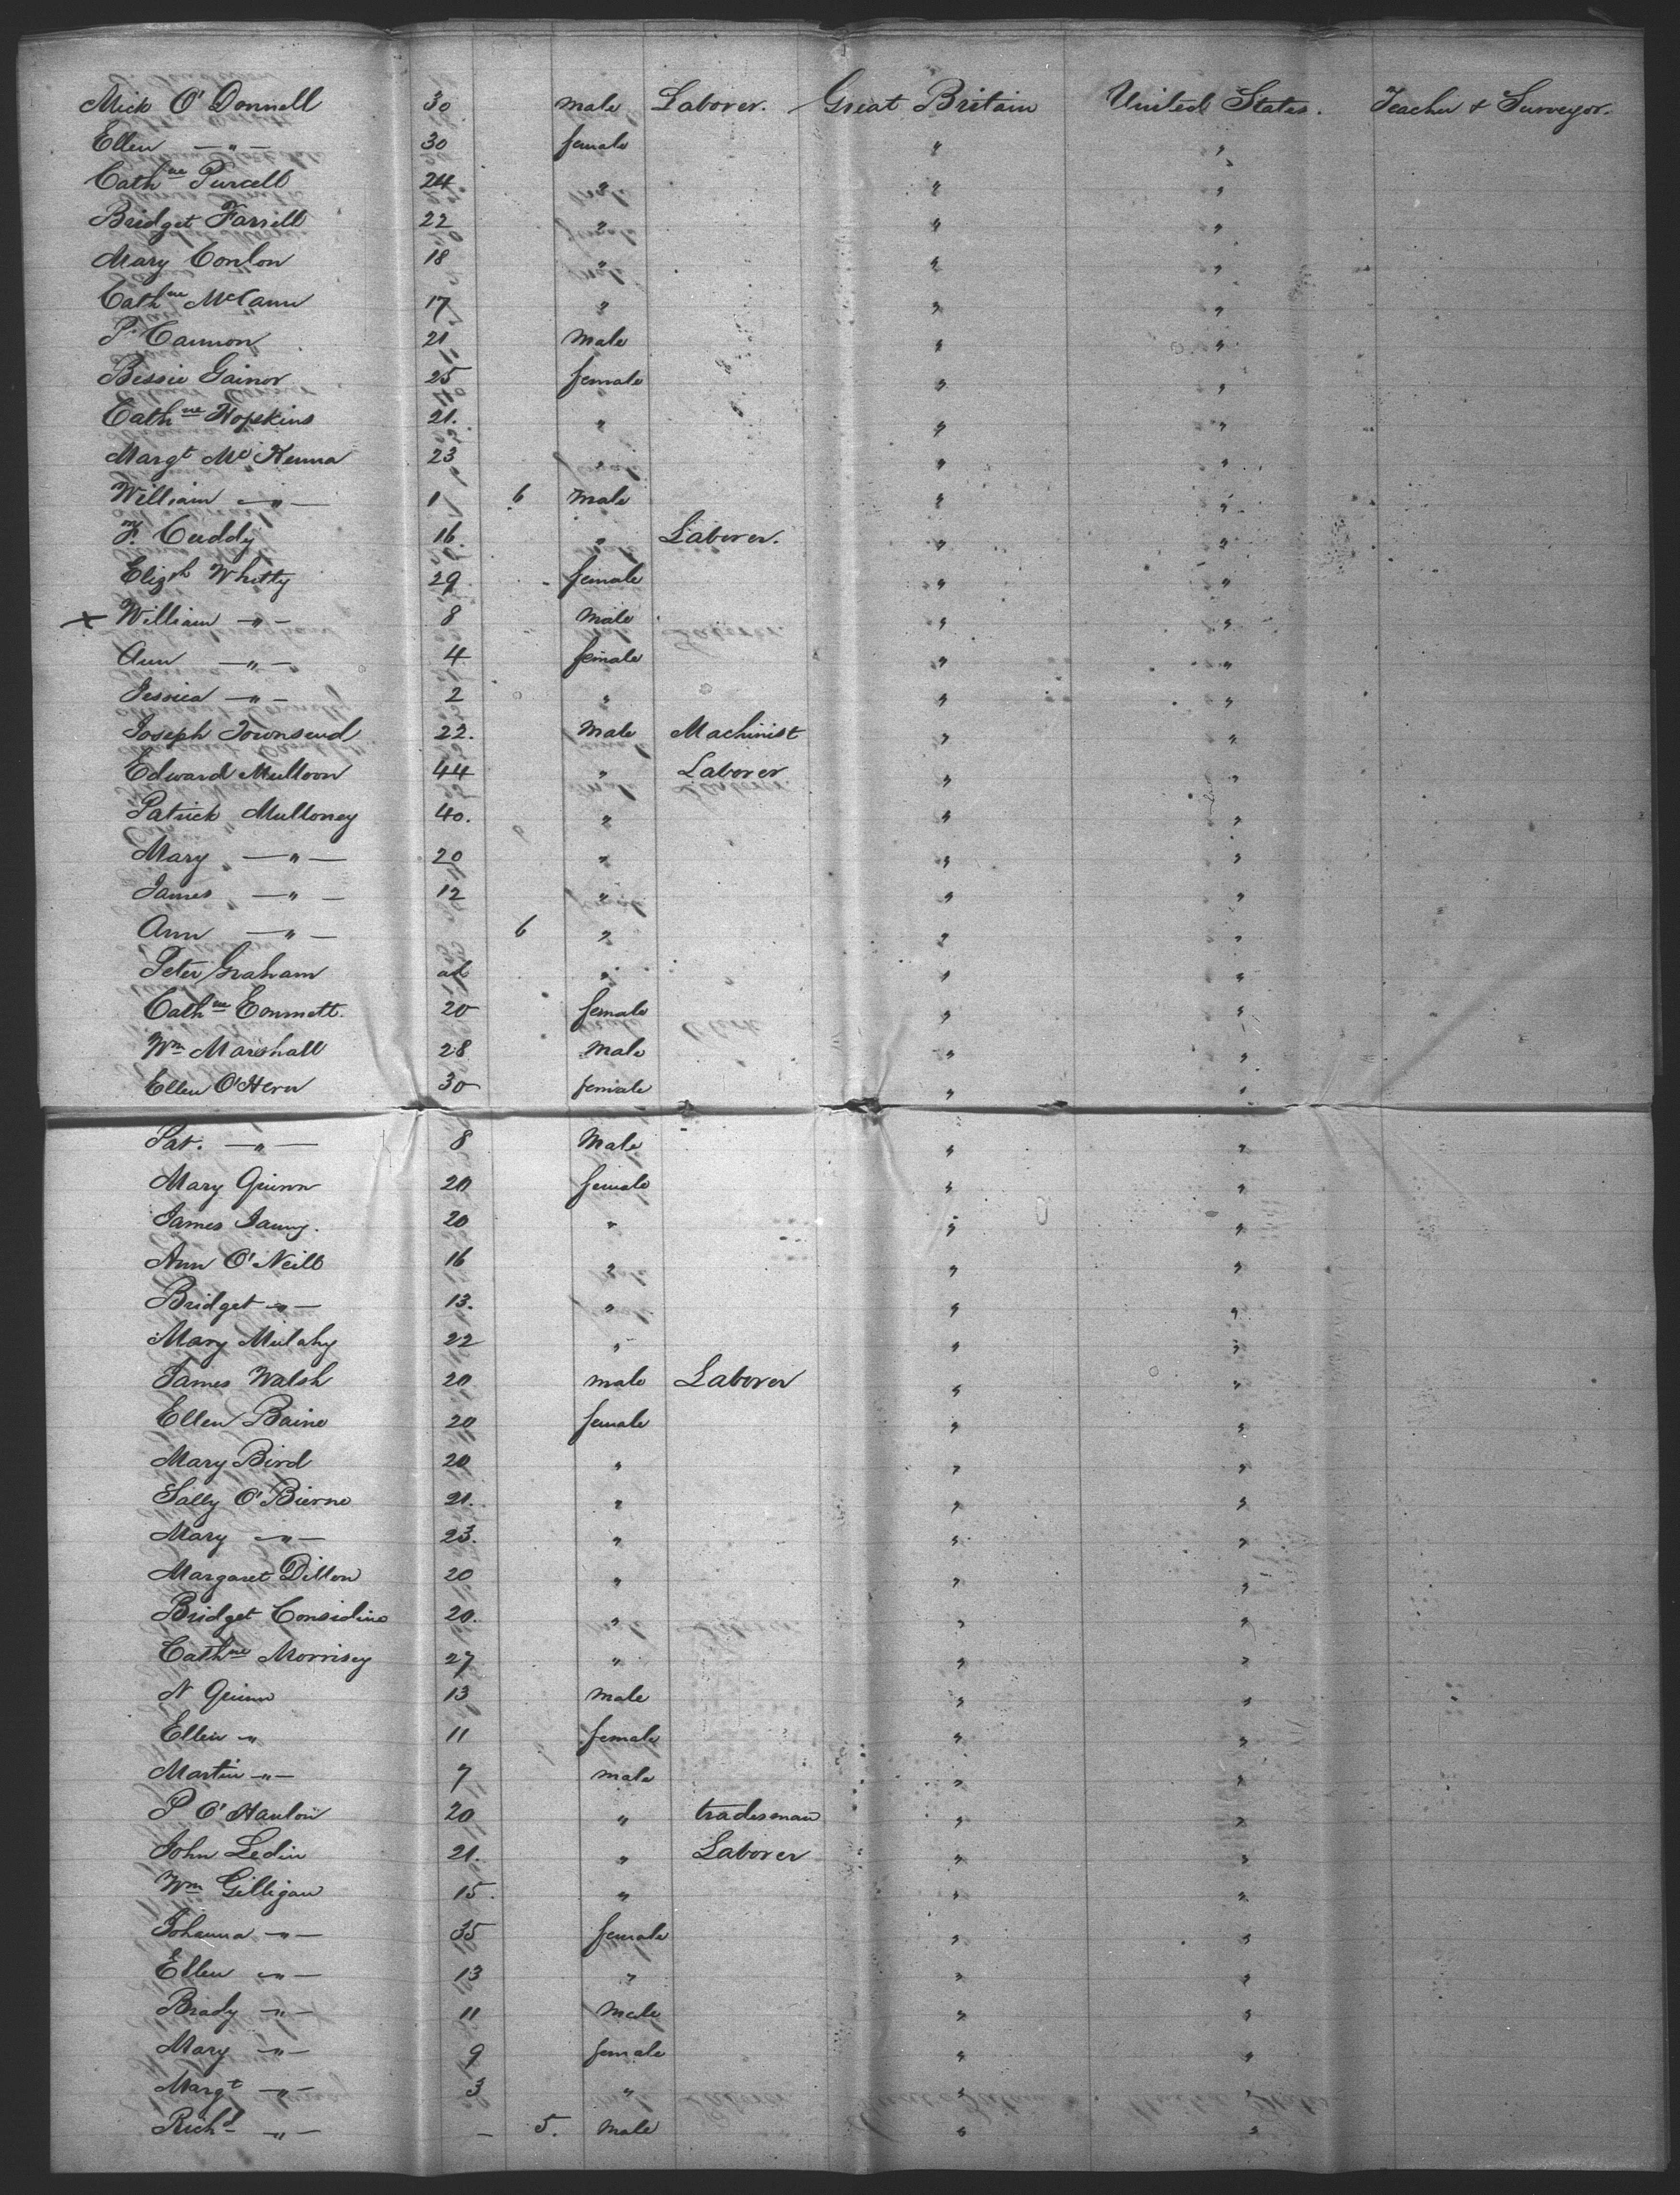 Mick O'Donnell 30 male Laborer. Great Britain United States. Teacher & Surveyor.
Ellen —"— 30 female " "
Cathne Purcell 24 " " "
Bridget Farrell 22 " " "
Mary Conlon 18 " " "
Cathne McCann 17 " " "
P. Cannon 21 male " "
Bessie Gainor 25 female " "
Cathne Hopkins 21. " " "
Margt McKenna 23 " " "
William —"— 1 6 male " "
F. Cuddy 16. " Laborer. " "
Elizth Whitty 29 female " "
x William —"— 8 male " "
Ann —"— 4 female " "
Jessica —"— 2 " " "
Joseph Townsend 22. male Machinist " "
Edward Muldoon 44 " Laborer " "
Patrick Mulloney 40. " " "
Mary —"— 20 " " "
James —"— 12 " " "
Ann —"— 6 " " "
Peter Graham " " "
Cathne Emmett. 20 female " "
Wm Marshall 28 male " "
Ellen O'Hern 30 female " "
Pat. —"— 8 Male " "
Mary Quinn 20 female " "
James 20 " " "
Ann O'Neill 16 " " "
Bridget —"— 13. " " "
Mary Mulahy 22 " " "
James Walsh 20 male Laborer " "
Ellen Baine 20 female " "
Mary Bird 20 " " "
Sally O'Bierne 21. " " "
Mary —"— 23. " " "
Margaret Dillon 20 " " "
Bridget Considine 20. " " "
Cathne Morrisey 27 " " "
N Quinn 13 male " "
Ellen " 11 female " "
Martin —"— 7 male " "
P O'Hanlon 20 " tradesman " "
John Ledin 21. " Laborer " "
Wm Gilligan 15. " " "
Johanna —"— 35 female " "
Ellen —"— 13 " " "
Brady —"— 11 Male " "
Mary —"— 9 female " "
Margt —"— 3 " " "
Richd —"— – 5. male " "